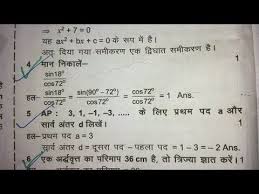 ⇒ x² + 7 = 0
यह ax² + bx + c = 0 के रूप में है।
अतः दिया गया समीकरण एक द्विघात समीकरण है। 1
4 मान निकालें-
sin18° / cos72°
हल- sin18° / cos72° = sin(90° – 72°) / cos72° = cos72° / cos72° = 1 Ans.
5 AP : 3, 1, –1, –3, ..... के लिए प्रथम पद a और
सार्व अंतर d लिखें। 1
हल– प्रथम पद a = 3
सार्व अंतर d = दूसरा पद - पहला पद = 1 – 3 = – 2 Ans.
6 एक अर्द्धवृत्त का परिमाप 36 cm है, तो त्रिज्या ज्ञात करें। 1